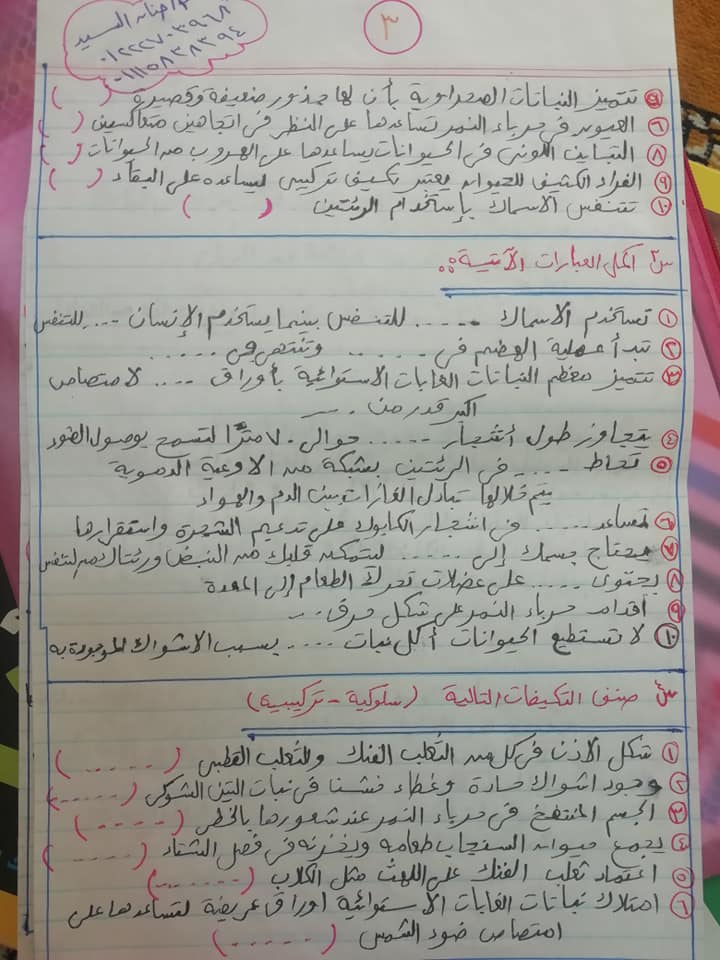 ٣
أ/ حنان السيد
٠١٢٢٢٧٠٣٩٦٨
٠١١١٥٨٣٨٣٩٤
٥ تتميز النباتات الصحراوية بأن لها جذور ضعيفة وقصيرة ( )
٦ العيون في حرباء النمر تساعدها على النظر في اتجاهين متعاكسين ( )
٨ التباين اللوني في الحيوانات يساعدها على الهروب من الحيوانات ( )
٩ الفراء الكثيف للحيوان يعتبر تكيف تركيبي ليساعده على البقاء ( )
١٠ تتنفس الاسماك بإستخدام الرئتين ( )
س٢ أكمل العبارات الآتية:
١ تستخدم الاسماك ..... للتنفس بينما يستخدم الإنسان .... للتنفس
٢ تبدأ عملية الهضم في ..... وتنتهي في .....
٣ تتميز معظم النباتات الغابات الاستوائية بأوراق .... لامتصاص
اكبر قدر من ....
٤ يتجاوز طول أشجار ..... حوالي ٧٠ مترًا لتسمح بوصول الضوء
٥ تحاط .... في الرئتين بشبكة من الاوعية الدموية
يتم خلالها تبادل الغازات بين الدم والهواء
٦ تساعد ..... في اشجار الكابوك على تدعيم الشجرة واستقرارها
٧ يحتاج جسمك إلى ..... ليتمكن قلبك من النبض ورئتاك من التنفس
٨ يحتوى ..... على عضلات تحرك الطعام إلى المعدة
٩ أقدام حرباء النمر على شكل حرف ...
١٠ لا تستطيع الحيوانات أكل نبات .... بسبب الاشواك الموجودة به
س٣ صنف التكيفات التالية (سلوكية - تركيبية)
١ شكل الأذن في كل من الثعلب الفنك والثعلب القطبي (.....)
٢ وجود اشواك حادة وغطاء خشنا في نبات التين الشوكى (.....)
٣ الجسم المنتفخ في حرباء النمر عند شعورها بالخطر (.....)
٤ يجمع حيوان السنجاب طعامه ويخزنه في فصل الشتاء (.....)
٥ اعتماد ثعلب الفنك على اللهث مثل الكلاب (.....)
٦ امتلاك نباتات الغابات الاستوائية اوراق عريضة لتساعدها على
امتصاص ضوء الشمس (.....)